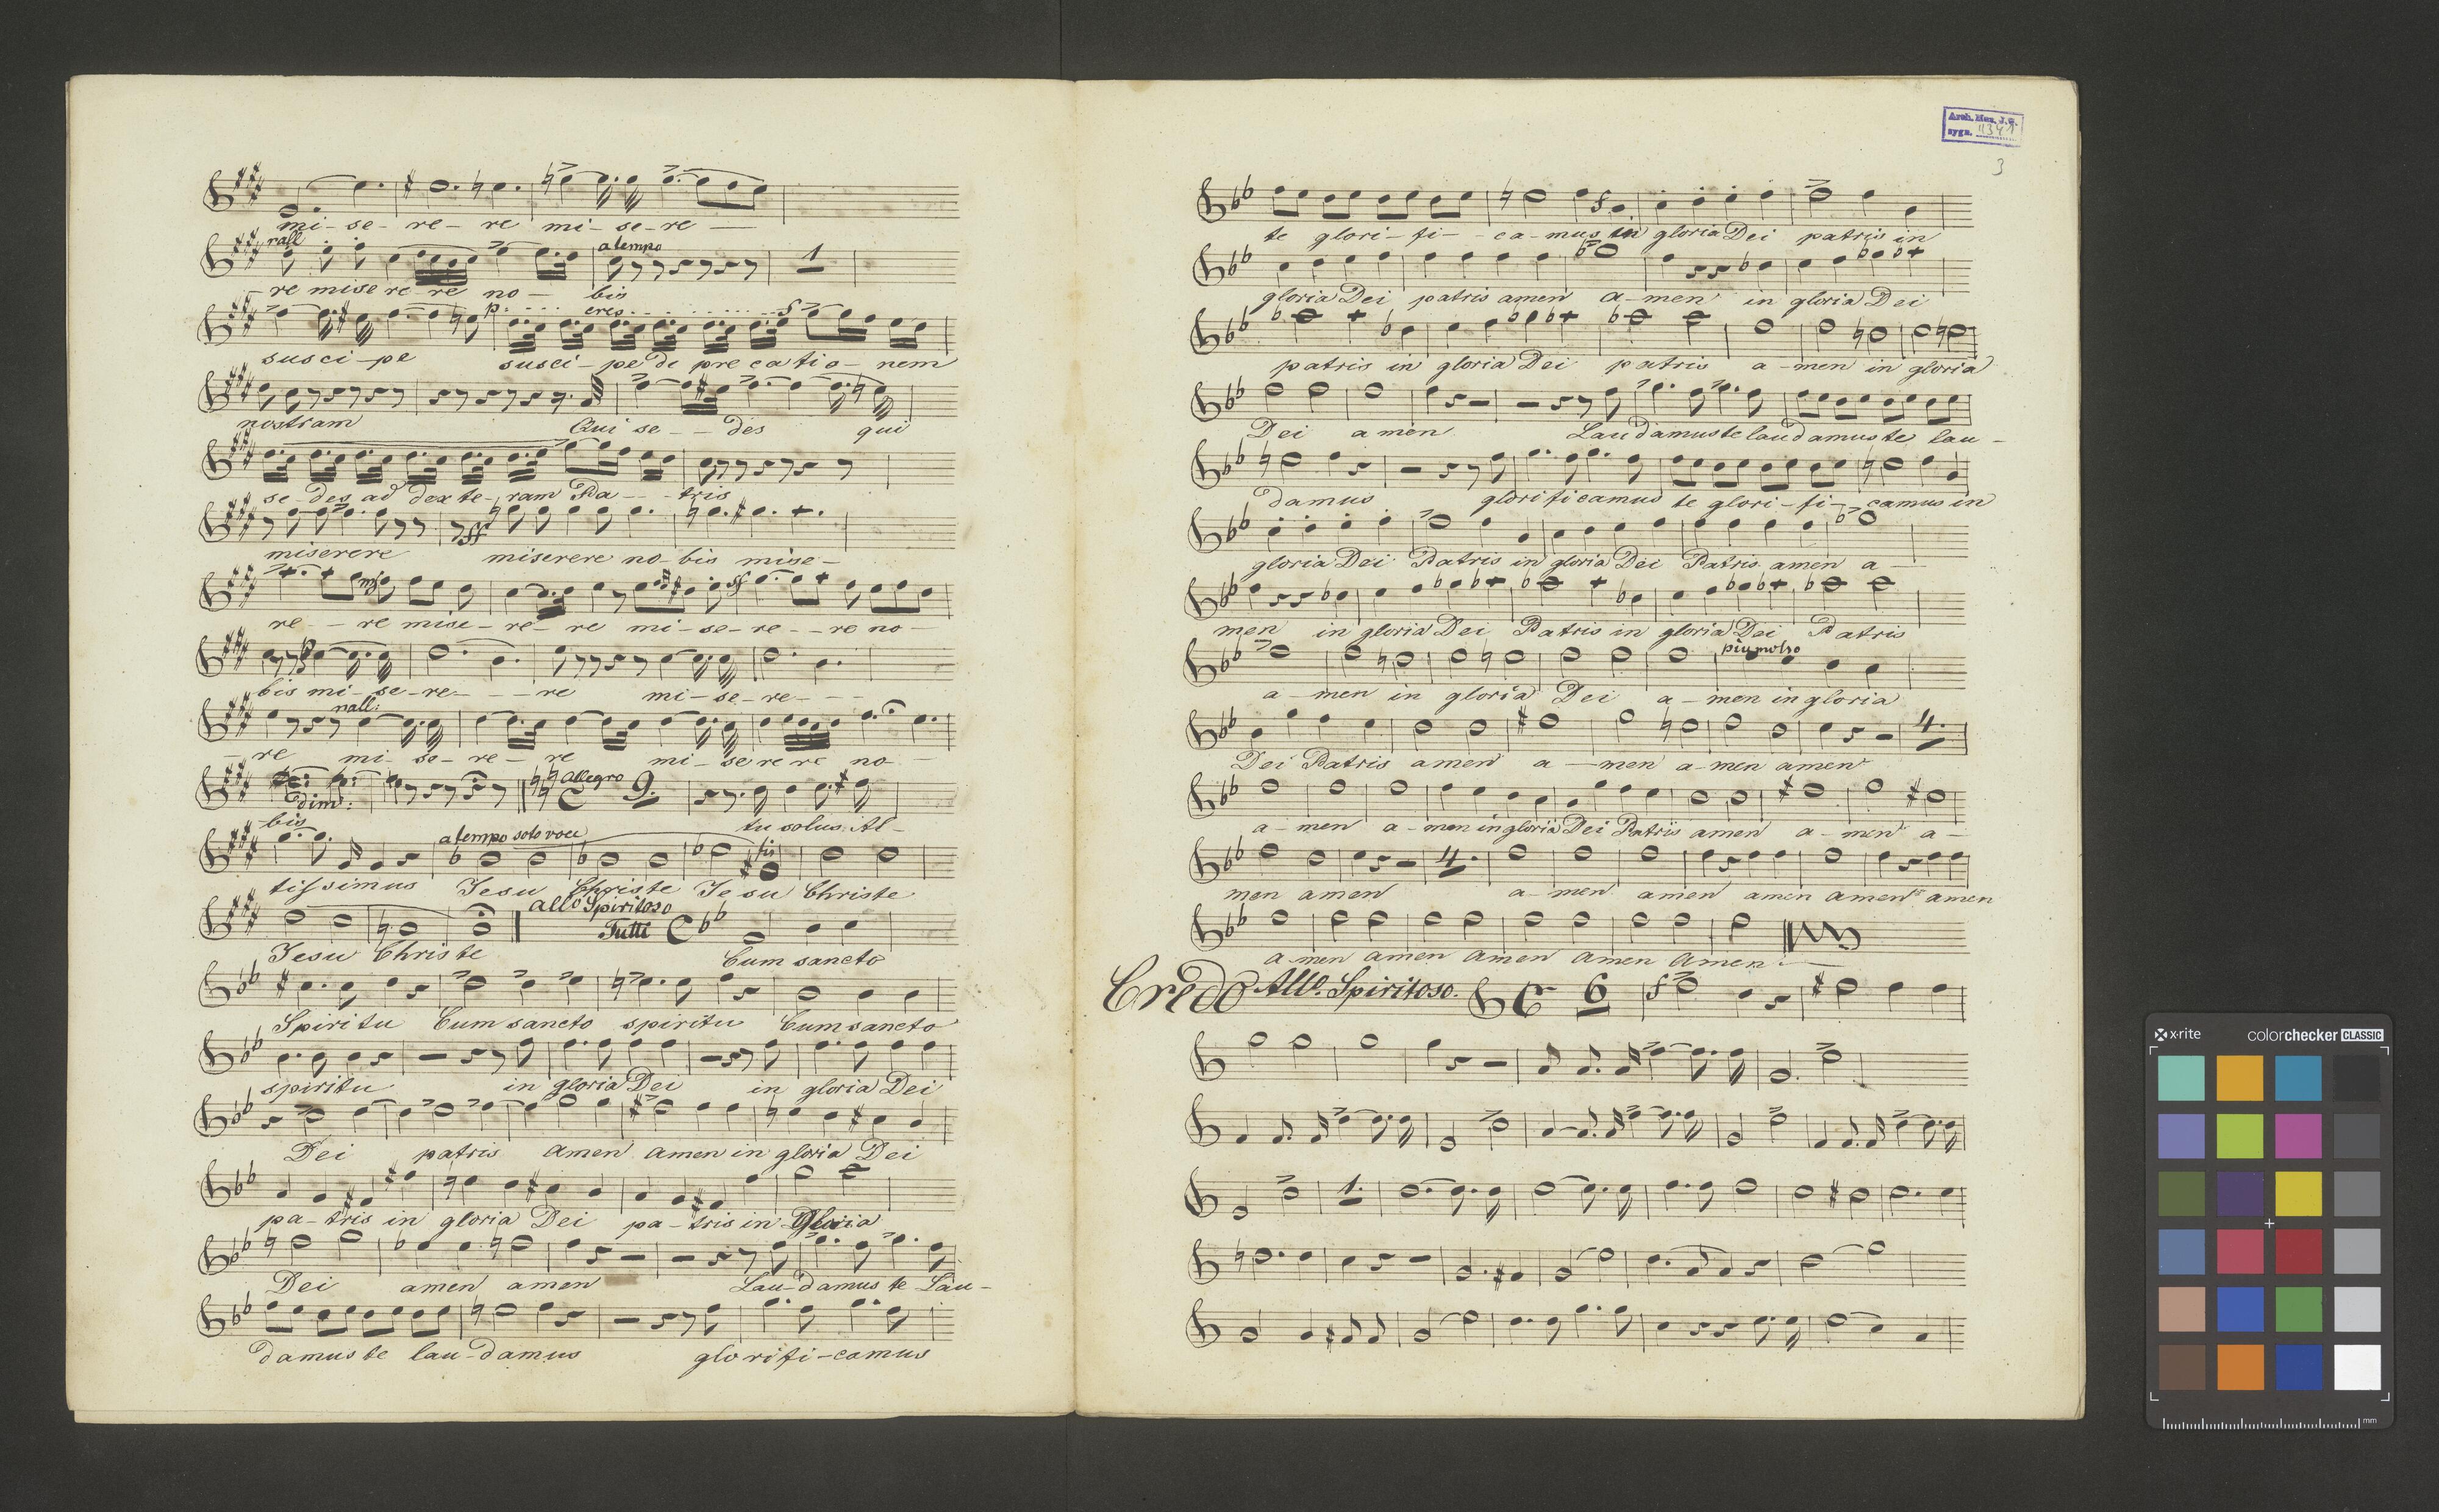 mi - se - re - re mi - se - re -
rall a tempo 1
- re mise re - re no - bis
p. cres. f
susci - pe susci - pe de pre ca tio - nem
nostram Qui se - - des qui
se - des ad dex te - ram Pa - - tris
ff
miserere miserere no - bis mise -
mf sf
re - - re mise - re - re mi - se - re - - re no -
bis mi - se - re - - - re mi - se - re - - -
rall:
- re mi - se - re - re mi - se re re no -
dim: allegro 9.
bis tu solus Al -
a tempo soto voce fis
tissimus Jesu Christe Je su Christe
allo Spiritoso
Tutti
Jesu Christe Cum sancto
Spiritu Cum sancto spiritu Cum sancto
spiritu in gloria Dei in gloria Dei
Dei patris amen amen in gloria Dei
pa - tris in gloria Dei pa - tris in Gloria
Dei amen amen Lau - damus te Lau -
damus te lau - damus glorifi - camus
Arch. Muz. J.G.
sygn. 11341
3
f
te glori - fi - - ca - mus in gloria Dei patris in
gloria Dei patris amen a - men in gloria Dei
patris in gloria Dei patris a - men in gloria
Dei amen Laudamus te laudamus te lau -
damus glorificamus te glori - fi - camus in
gloria Dei Patris in gloria Dei Patris amen a -
men in gloria Dei Patris in gloria Dei Patris
piu molso
a - men in gloria Dei a - men in gloria
4.
Dei Patris amen a - men a - men amen
a - men a - men in gloria Dei Patris amen a - men a -
4.
men amen a - men amen amen amen amen
a men amen amen amen Amen.
Credo Allo. Spiritoso. 6 f
1.
x-rite colorchecker CLASSIC
mm